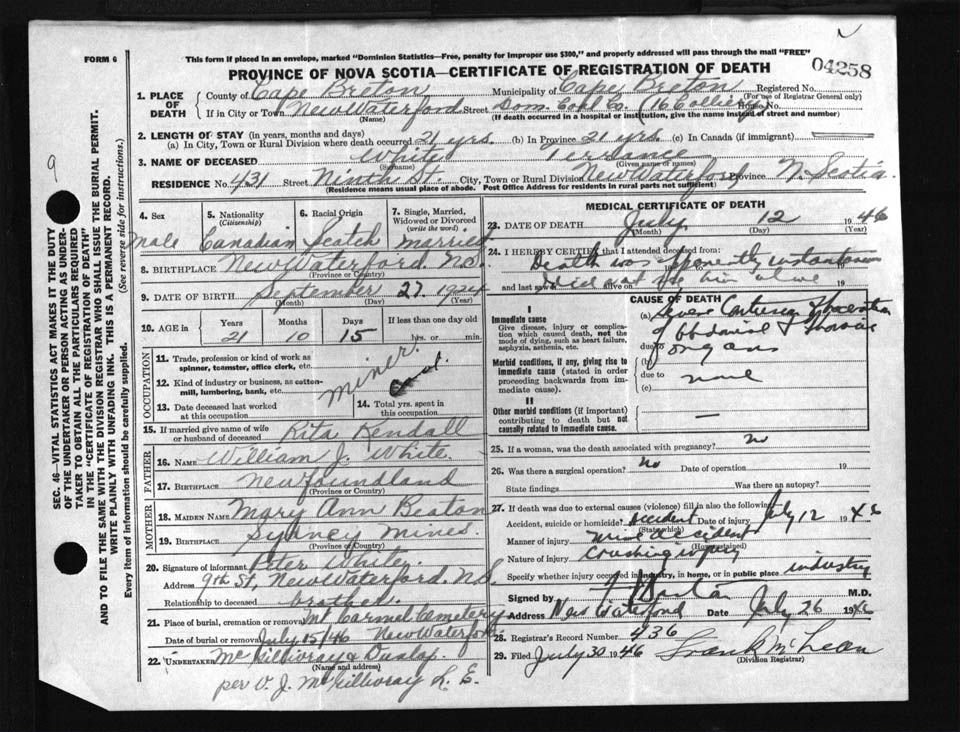 FORM 6
This form if placed in an envelope, marked "Dominion Statistics—Free, penalty for improper use $300," and properly addressed will pass through the mail "FREE"
PROVINCE OF NOVA SCOTIA—CERTIFICATE OF REGISTRATION OF DEATH
04258
9
SEC. 46—VITAL STATISTICS ACT MAKES IT THE DUTY
OF THE UNDERTAKER OR PERSON ACTING AS UNDER-
TAKER TO OBTAIN ALL THE PARTICULARS REQUIRED
IN THE "CERTIFICATE OF REGISTRATION OF DEATH"
AND TO FILE THE SAME WITH THE DIVISION REGISTRAR WHO SHALL ISSUE THE BURIAL PERMIT.
WRITE PLAINLY WITH UNFADING INK. THIS IS A PERMANENT RECORD.
Every item of information should be carefully supplied. (See reverse side for instructions.)
1. PLACE OF DEATH
County of Cape Breton Municipality of Cape Breton Registered No.
(For use of Registrar General only)
If in City or Town New Waterford Street Dom. Coal Co. (16 Colliery) House No.
(Name) (If death occurred in a hospital or institution, give the name instead of street and number)
2. LENGTH OF STAY (in years, months and days)
(a) In City, Town or Rural Division where death occurred 21 yrs. (b) In Province 21 yrs. (c) In Canada (if immigrant)
3. NAME OF DECEASED White
(Surname) (Given name or names)
RESIDENCE No. 431 Street Ninth St. City, Town or Rural Division New Waterford Province N. Scotia
(Residence means usual place of abode. Post Office Address for residents in rural parts not sufficient)
4. Sex Male
5. Nationality (Citizenship) Canadian
6. Racial Origin Scotch
7. Single, Married, Widowed or Divorced (write the word) Married
8. BIRTHPLACE New Waterford. N.S.
(Province or Country)
9. DATE OF BIRTH September 27. 1924
(Month) (Day) (Year)
10. AGE in Years Months Days If less than one day old
21 10 15 hrs. or min.
OCCUPATION
11. Trade, profession or kind of work as spinner, teamster, office clerk, etc. miner.
12. Kind of industry or business, as cotton-mill, lumbering, bank, etc. coal.
13. Date deceased last worked at this occupation
14. Total yrs. spent in this occupation
15. If married give name of wife or husband of deceased Rita Kendall
FATHER
16. Name William J. White.
17. Birthplace Newfoundland
(Province or Country)
MOTHER
18. Maiden Name Mary Ann Beaton
19. Birthplace Sydney Mines.
(Province or Country)
20. Signature of informant Peter White
Address 9th St, New Waterford. N.S.
Relationship to deceased brother.
21. Place of burial, cremation or removal Mt Carmel Cemetery
Date of burial or removal July 15/46 New Waterford
22. UNDERTAKER McGillivray & Dunlap.
(Name and address)
per V. J. McGillivray L. E.
MEDICAL CERTIFICATE OF DEATH
23. DATE OF DEATH July 12 1946
(Month) (Day) (Year)
24. I HEREBY CERTIFY that I attended deceased from:
Death was apparently instantaneous
and last saw alive on 19
did not see him alive
CAUSE OF DEATH
I
Immediate cause
Give disease, injury or complication which caused death, not the mode of dying, such as heart failure, asphyxia, asthenia, etc.
(a) Severe Contusion & laceration
of abdominal & thoracic
due to organs
Morbid conditions, if any, giving rise to immediate cause (stated in order proceeding backwards from immediate cause).
(b)
due to none
(c)
II
Other morbid conditions (if important) contributing to death but not causally related to immediate cause. —
25. If a woman, was the death associated with pregnancy? no
26. Was there a surgical operation? No Date of operation 19
State findings Was there an autopsy?
27. If death was due to external causes (violence) fill in also the following:
Accident, suicide or homicide? Accident Date of injury July 12 1946
(State which)
Manner of injury mine accident
(How sustained)
Nature of injury Crushing injury
Specify whether injury occurred in industry, in home, or in public place industry
Signed by M.D.
Address New Waterford Date July 26 1946
28. Registrar's Record Number 436
29. Filed July 30 1946 Frank McLean
(Division Registrar)